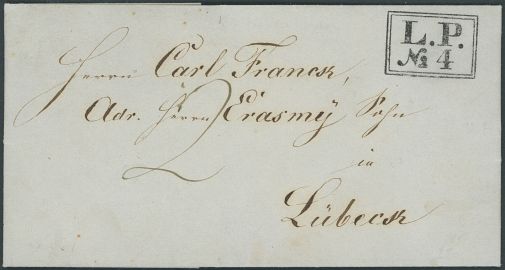 L.P.
№ 4
Herrn Carl Franck,
Adr. Herrn Erasmÿ Sohn
2
in
Lübeck